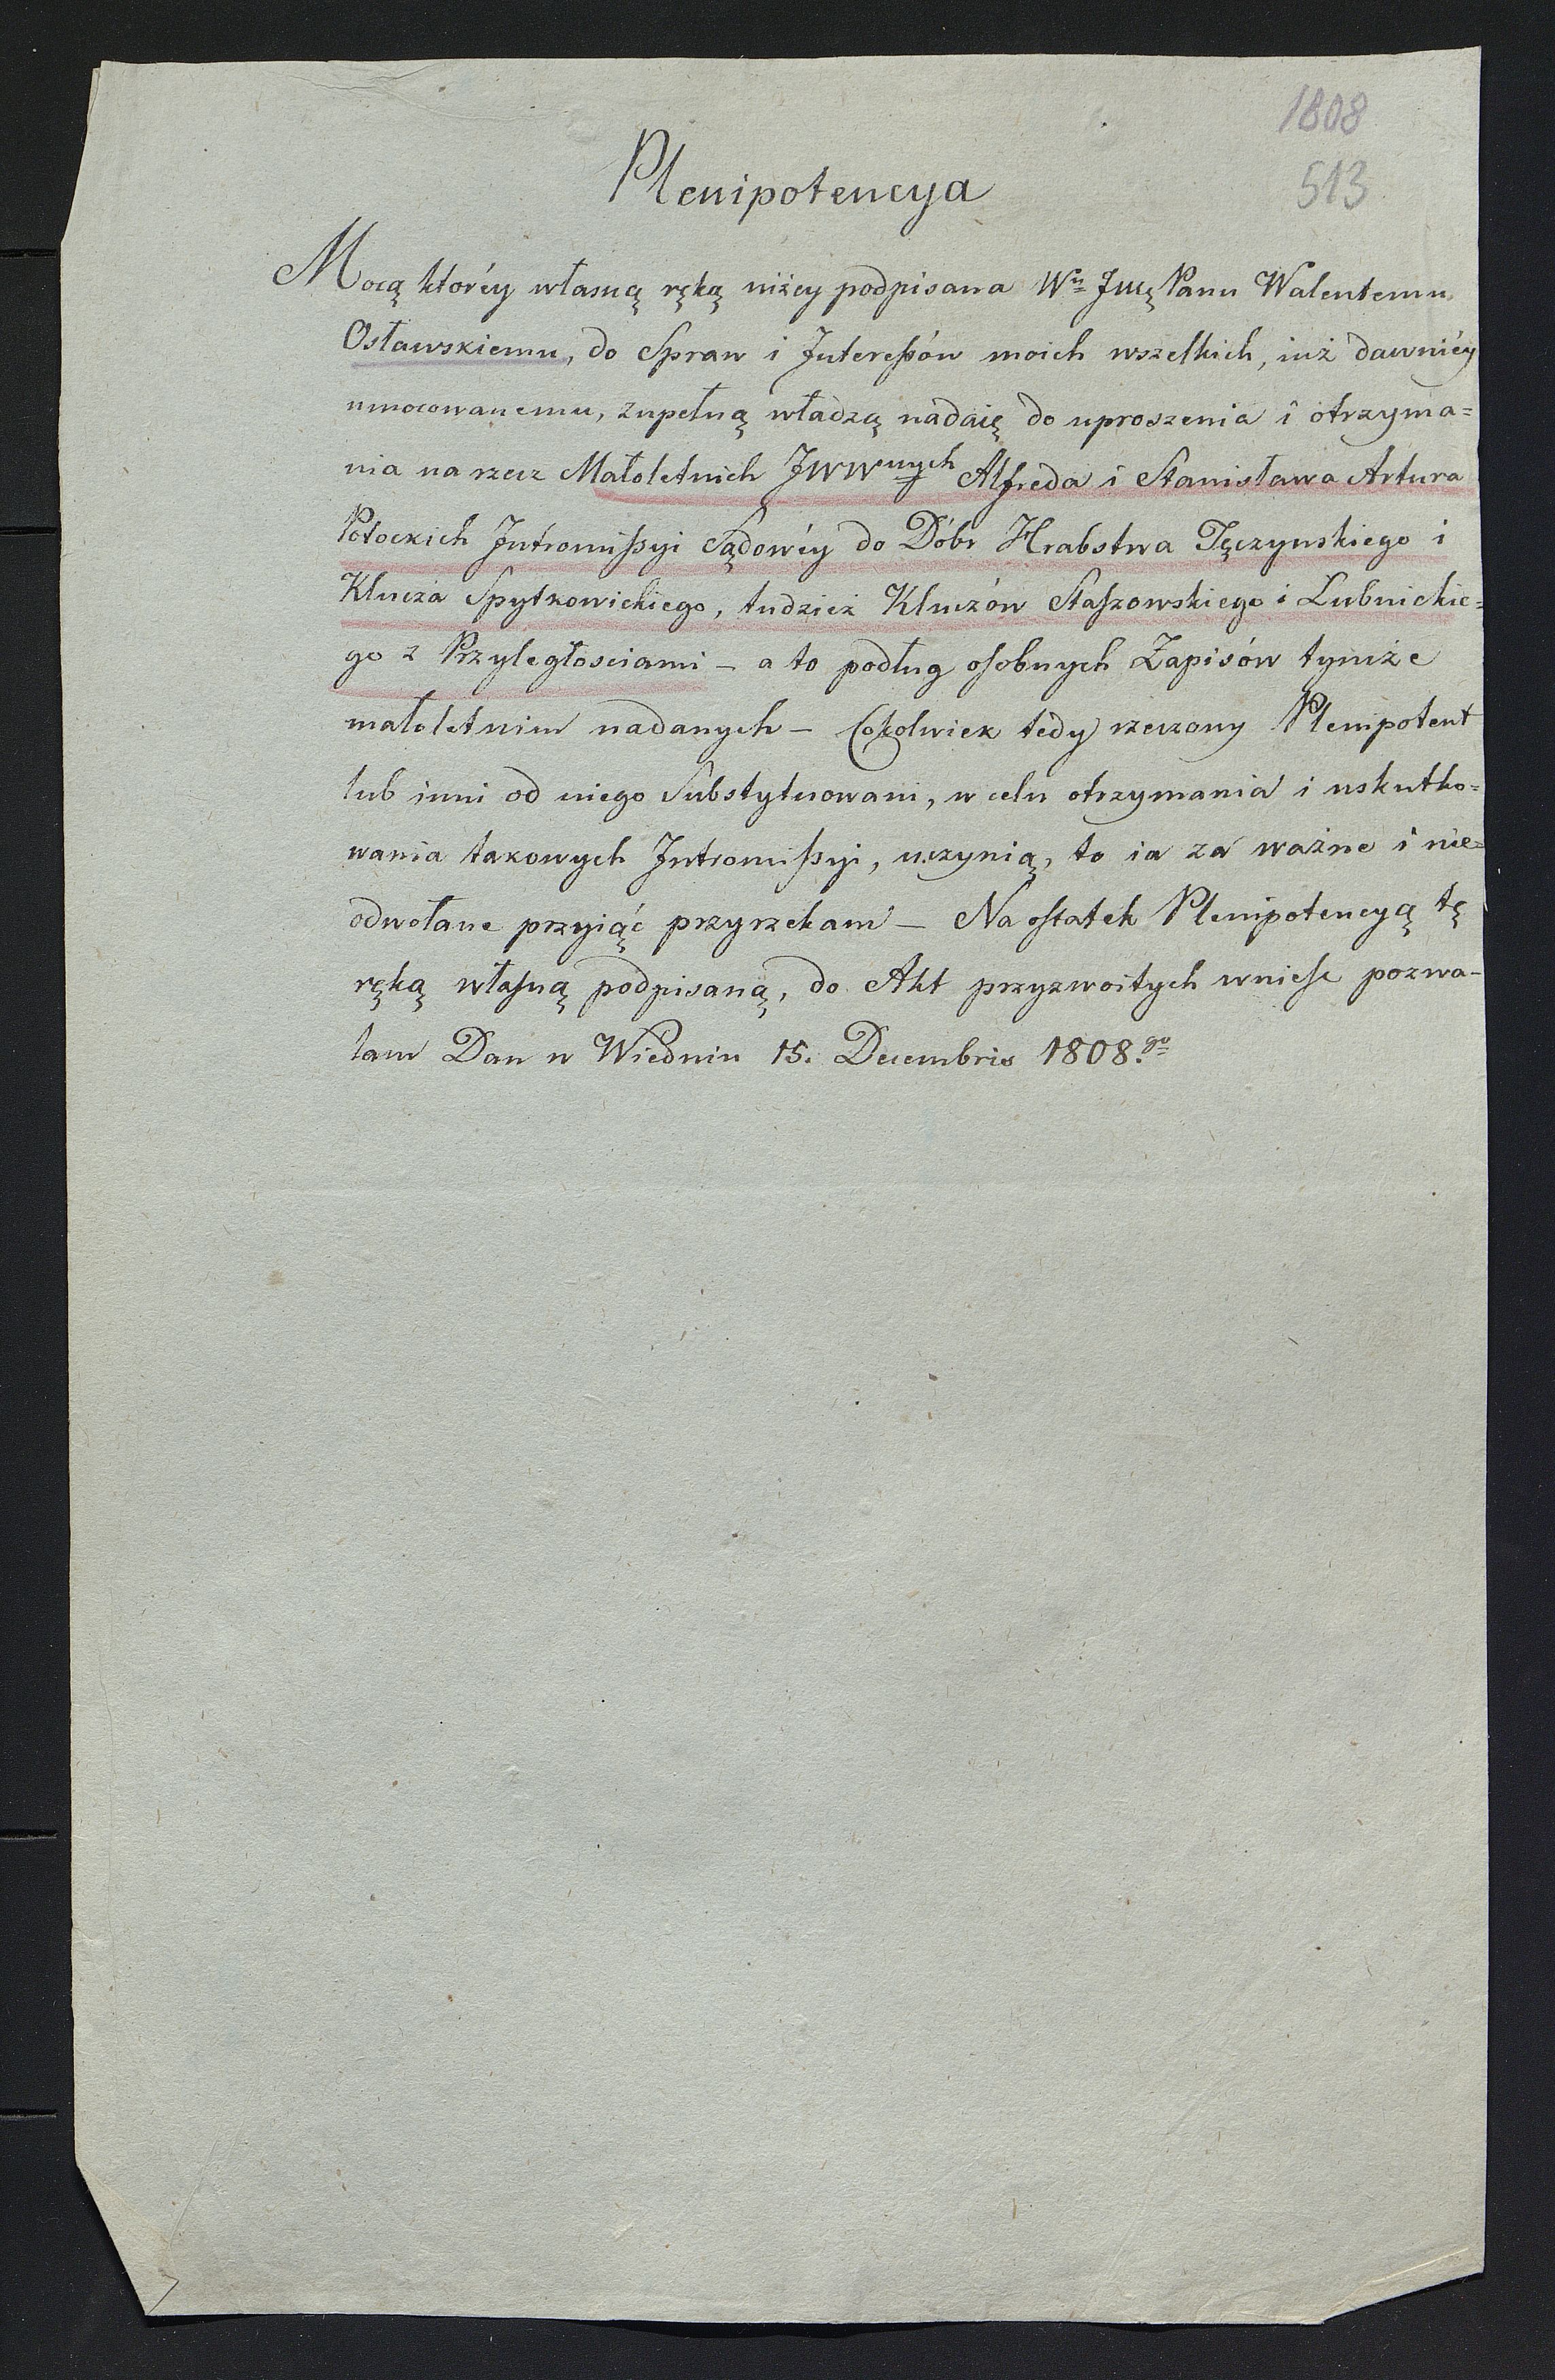 1808
513
Plenipotencya
Mocą ktoréy własną ręką niżey podpisana Wu Jmę Panu Walentemu
Osławskiemu, do Spraw i Interessów moich wszelkich, iuż dawniéy
umocowanemu, zupełną władzą nadaię do uproszenia i otrzyma=
nia na rzecz Małoletnich JWWnych Alfreda i Stanisława Artura
Potockich Intromissyi Sądowéy do Dóbr Hrabstwa Tęczynskiego i
Klucza Spytkowickiego, tudzież Kluczów Staszowskiego i Lubnickie=
go z Przyległosciami – a to podług osobnych Zapisów tymże
małoletnim nadanych – Cokolwiek tedy rzeczony Plenipotent
lub inni od niego Substytuowani, w celu otrzymania i uskutko=
wania takowych Intromissyi, uczynią, to ia za ważne i nie=
odwołane przyiąć przyrzekam – Na ostatek Plenipotencyą tę
ręką własną podpisaną, do Akt przyzwoitych wniesc pozwa-
lam Dan w Wiedniu 15. Decembris 1808.go